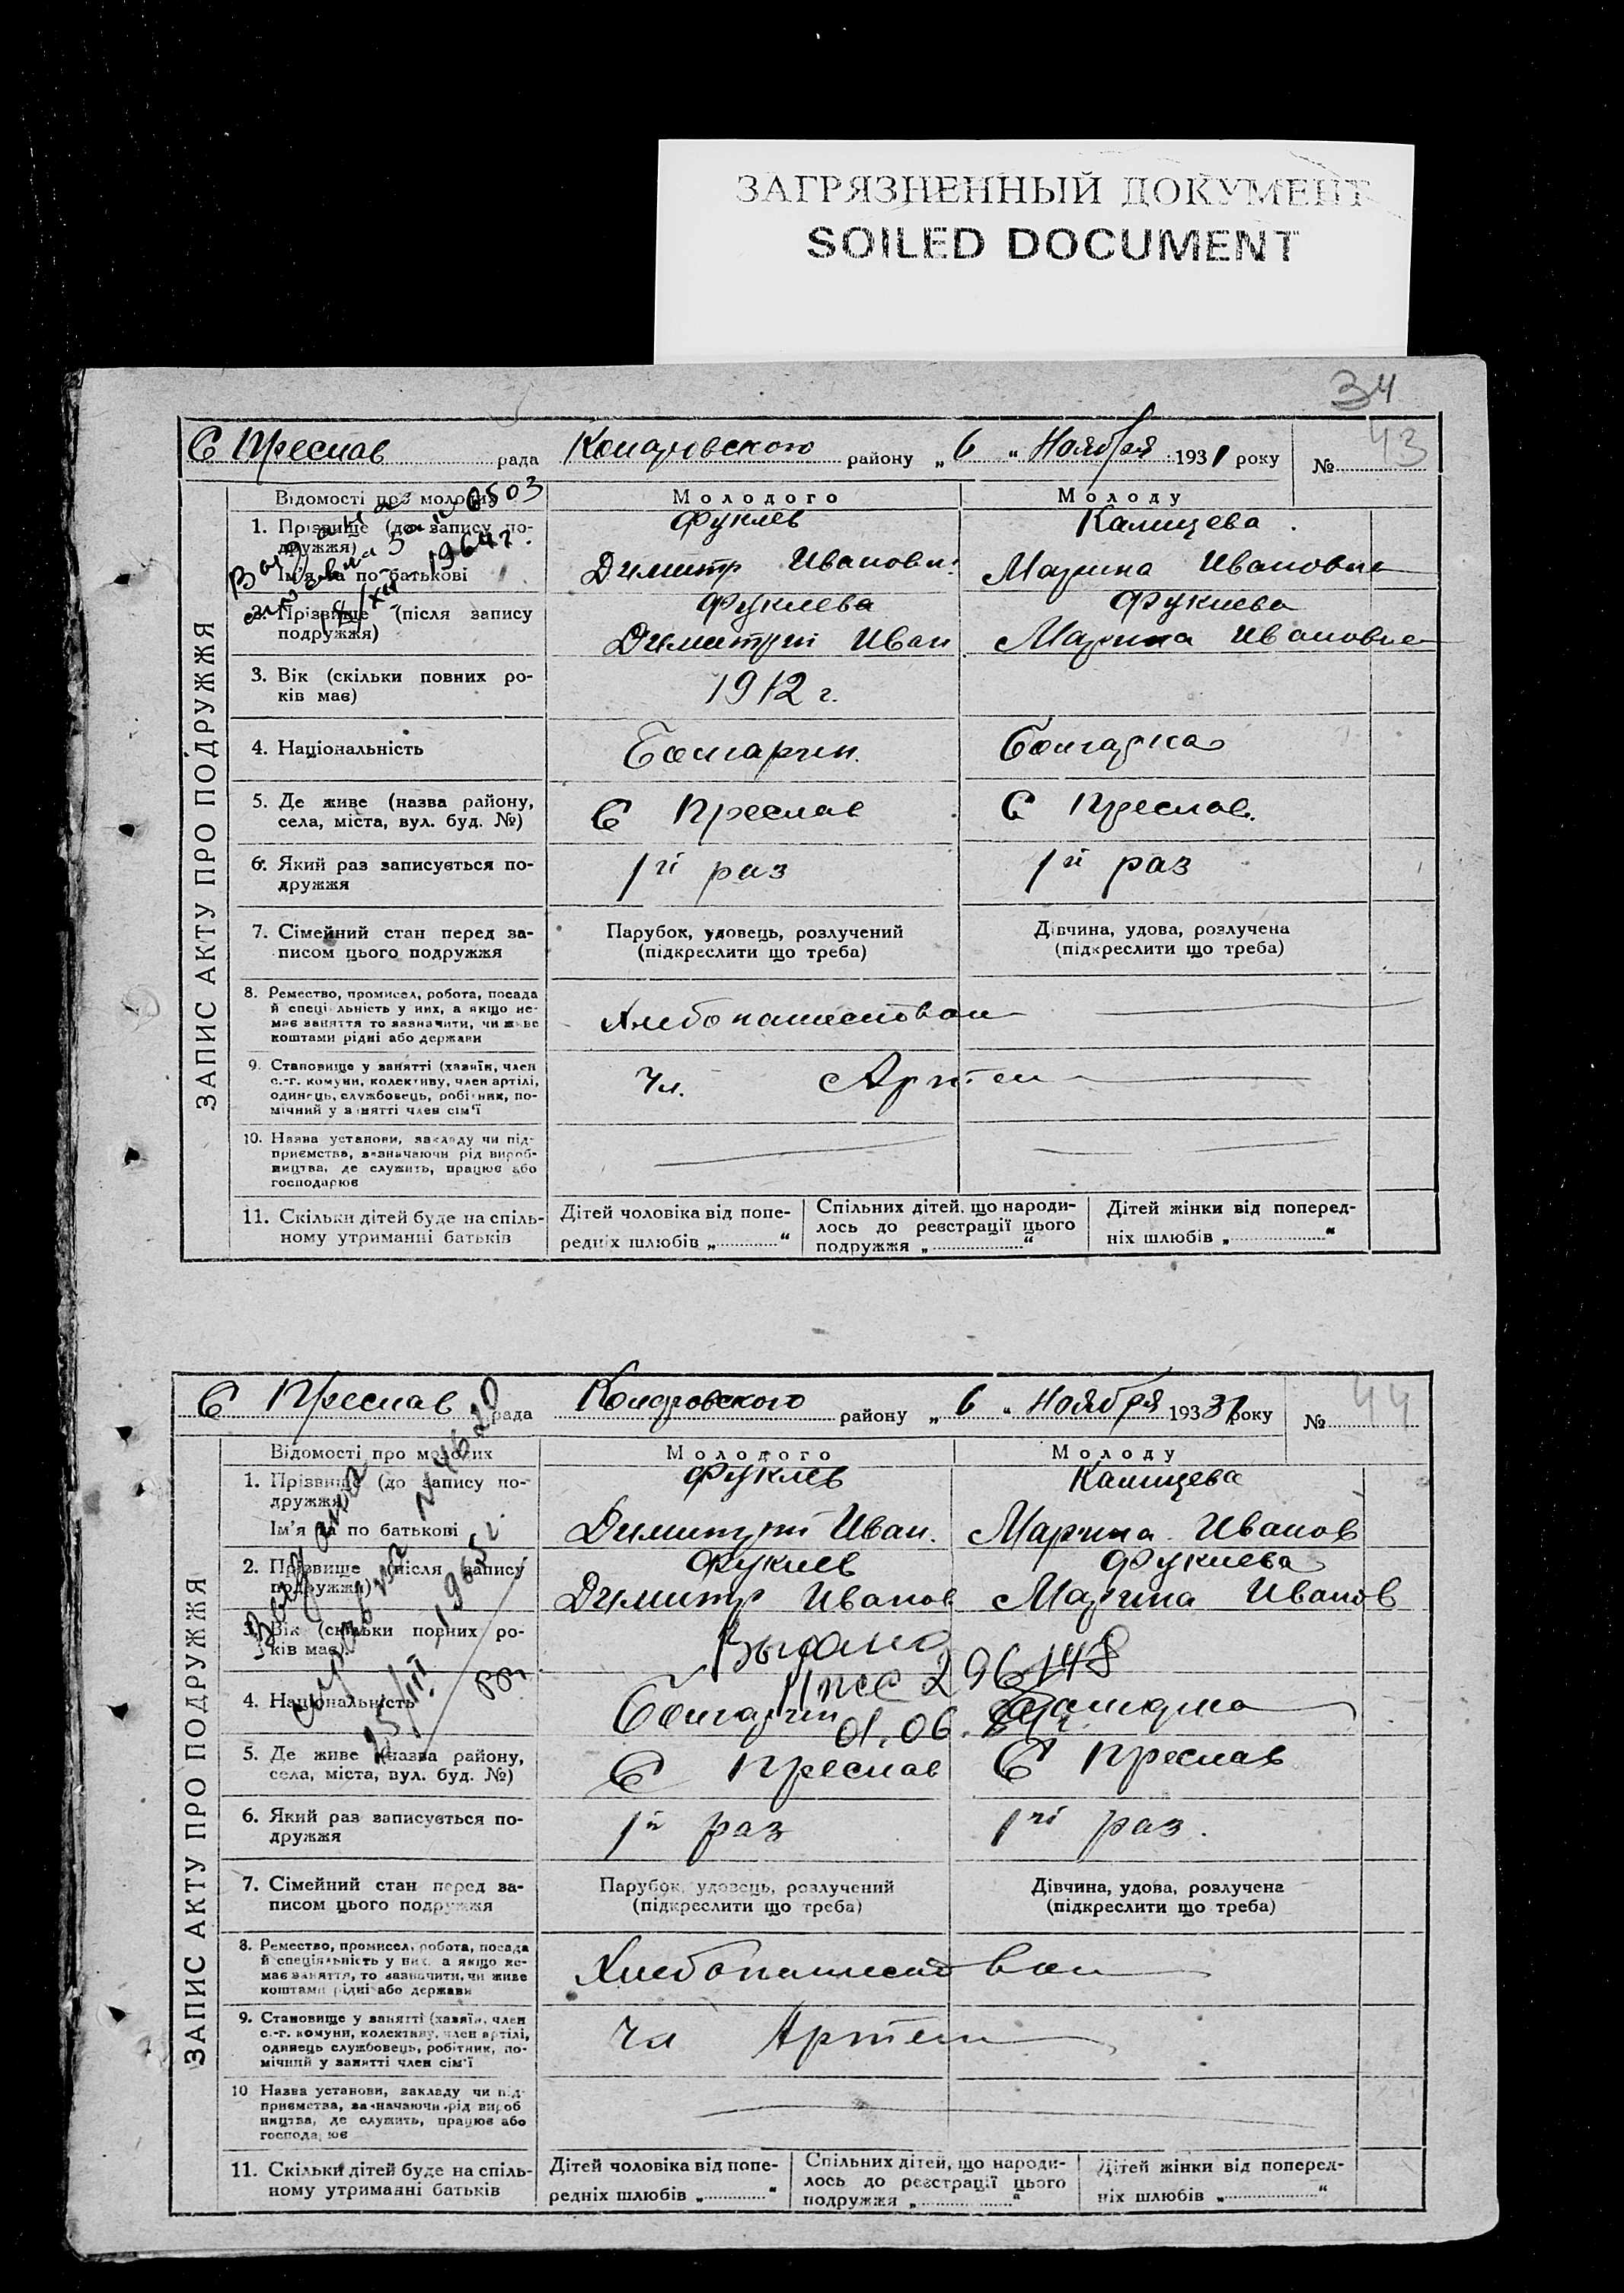 ЗАГРЯЗНЕННЫЙ ДОКУМЕНТ
SOILED DOCUMENT
34
С Преслав рада Коларовского району „6“ Ноября 1931 року № 43
ЗАПИС АКТУ ПРО ПОДРУЖЖЯ
Відомості про молодих Молодого Молоду
1. Прізвище (до запису по-
дружжя)
Фуклев Калицева
Ім'я та по батькові
Димитр Иванови Марина Ивановне
2. Прізвище (після запису
подружжя)
Фуклева Фуклева
Димитрий Иван Марина Ивановне
1964 г.
3. Вік (скільки повних ро-
ків має)
1912 г.
4. Національність Болгарин. Болгарка
5. Де живе (назва району,
села, міста, вул. буд. №)
С Преслав С Преслав.
6. Який раз записується по-
дружжя
1й раз 1й раз
7. Сімейний стан перед за-
писом цього подружжя
Парубок, удовець, розлучений
(підкреслити що треба)
Дівчина, удова, розлучена
(підкреслити що треба)
8. Ремество, промисел, робота, посада
й спеціальність у них, а якщо не-
має заняття то зазначити, чи живе
коштами рідні або держави
9. Становище у занятті (хазяїн, член
с.-г. комуни, колективу, член артілі,
одинець, службовець, робітник, по-
мічний у занятті член сім'ї
Чл. Артели
10. Назва установи, закладу чи під-
приємства, зазначаючи рід вироб-
ництва, де служить, працює або
господарює
11. Скільки дітей буде на спіль-
ному утриманні батьків
Дітей чоловіка від попе-
редніх шлюбів „ “
Спільних дітей, що народи-
лось до реєстрації цього
подружжя „ “
Дітей жінки від поперед-
ніх шлюбів „ “
С Преслав рада Коларовского району „6“ Ноября 19331 року № 44
ЗАПИС АКТУ ПРО ПОДРУЖЖЯ
Відомості про молодих Молодого Молоду
1. Прізвище (до запису по-
дружжя)
Фуклев Калицева
Ім'я та по батькові
Димитрий Иван. Марина Иванов
2. Прізвище (після запису
подружжя)
Фуклев Фуклева
Димитр Иванов Марина Иванов
1965 г.
3. Вік (скільки повних ро-
ків має)
4. Національність Болгарин
5. Де живе (назва району,
села, міста, вул. буд. №)
С Преслав С Преслав
6. Який раз записується по-
дружжя
1й раз 1й раз.
7. Сімейний стан перед за-
писом цього подружжя
Парубок, удовець, розлучений
(підкреслити що треба)
Дівчина, удова, розлучена
(підкреслити що треба)
8. Ремество, промисел, робота, посада
й спеціяльність у них, а якщо не-
має заняття, то зазначити, чи живе
коштами рідні або держави
9. Становище у занятті (хазяїн, член
с.-г. комуни, колективу, член артілі,
одинець службовець, робітник, по-
мічний у занятті член сім'ї
Чл Артели
10 Назва установи, закладу чи під-
приємства, зазначаючи рід вироб
ництва, де служить, працює або
господарює
11. Скільки дітей буде на спіль-
ному утриманні батьків
Дітей чоловіка від попе-
редніх шлюбів „ “
Спільних дітей, що народи-
лось до реєстрації цього
подружжя „ “
Дітей жінки від поперед-
ніх шлюбів „ “